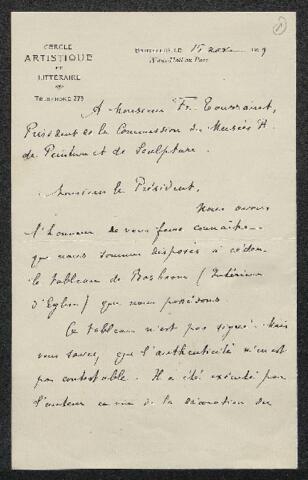 1
CERCLE
ARTISTIQUE
ET
LITTÉRAIRE
TÉLÉPHONE 273
BRUXELLES, LE 15
A Monsieur Fr. Toussaint,
Président de la Commission des Musées
de Peinture et de Sculpture.
Monsieur le Président,
Nous avons
l'honneur de vous faire connaître
que nous sommes disposés à céder
le tableau de Bosboom (Intérieur
d'Eglise) que nous possédons.
Ce tableau n'est pas signé. Mais
vous savez, que l'authenticité n'en est
pas contestable. Il a été exécuté par
l'auteur en vue de la décoration de